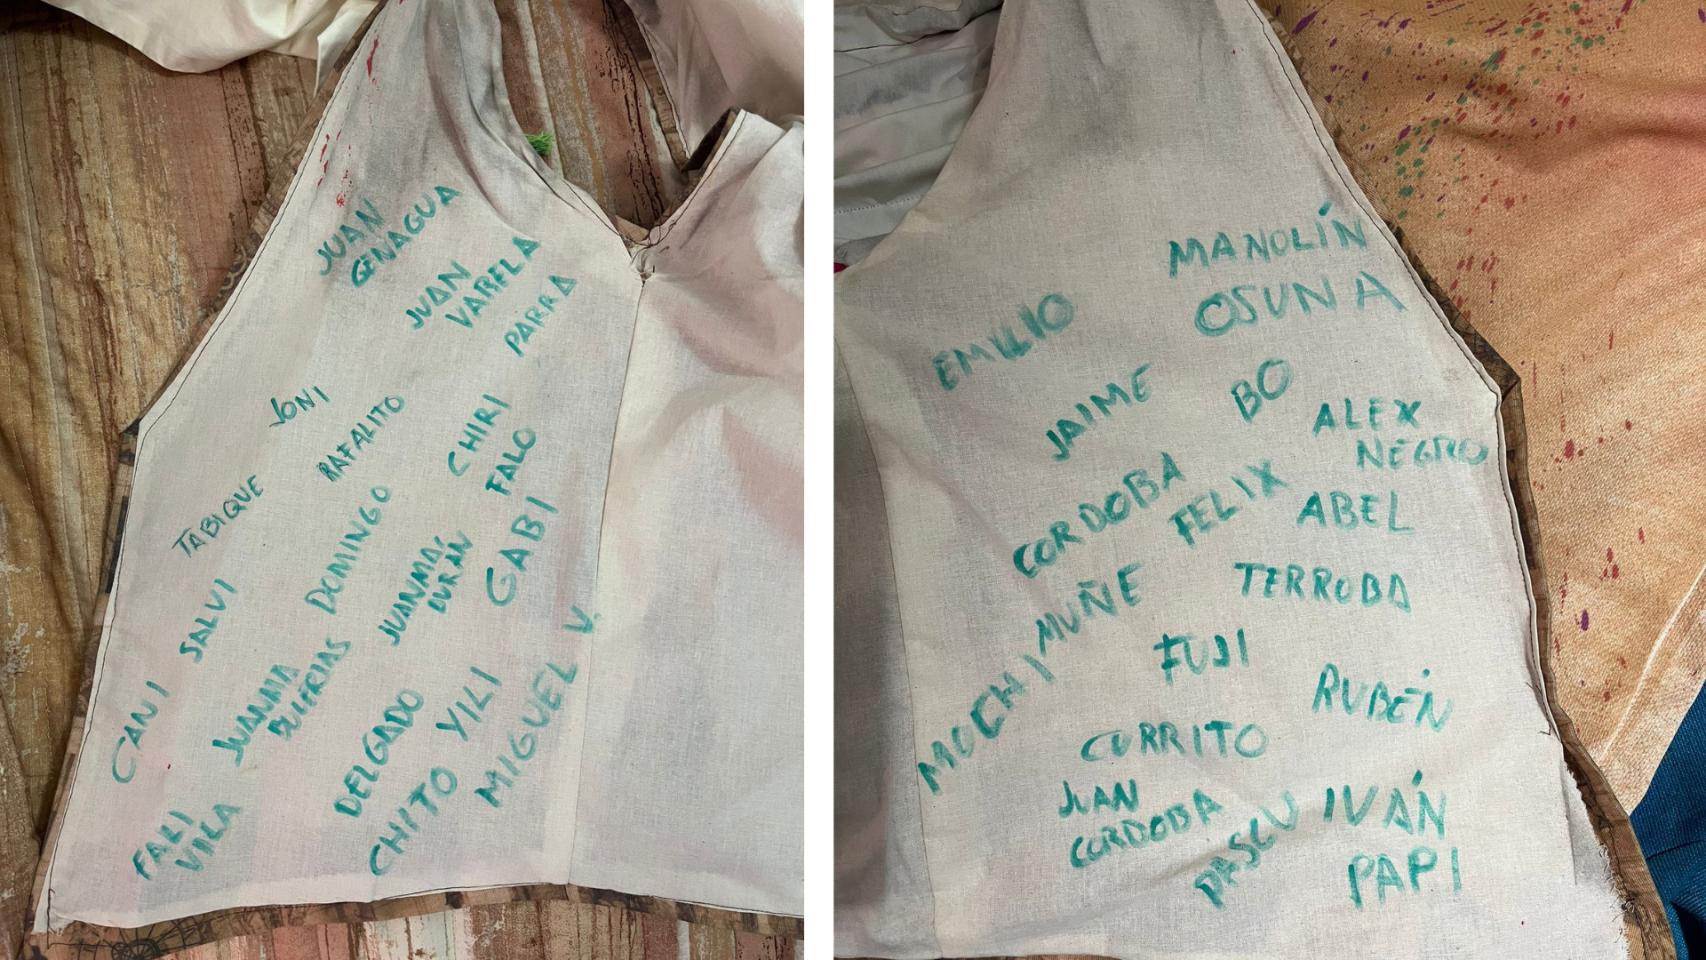 JUAN
CENAGUA
JUAN
VARELA
PARRA
JONI
RAFALITO
CHIRI
FALO
TABIQUE
DOMINGO
JUANMA
DURÁN
GABI
SALVI
JUANMA
CANI
DELGADO
YILI
MIGUEL V.
FALI
VILA
CHITO
MANOLÍN
OSUNA
EMILIO
JAIME
BO
ALEX
NEGRO
CORDOBA
FELIX
ABEL
MUÑE
TERROBA
MOCHI
FUJI
RUBÉN
CURRITO
JUAN
CORDOBA
IVÁN
PAPI